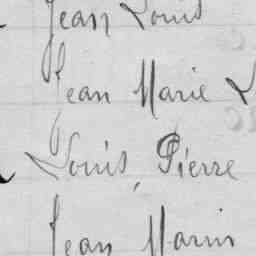 Jean Louis
Jean Marie L
Louis, Pierre
Jean Marin